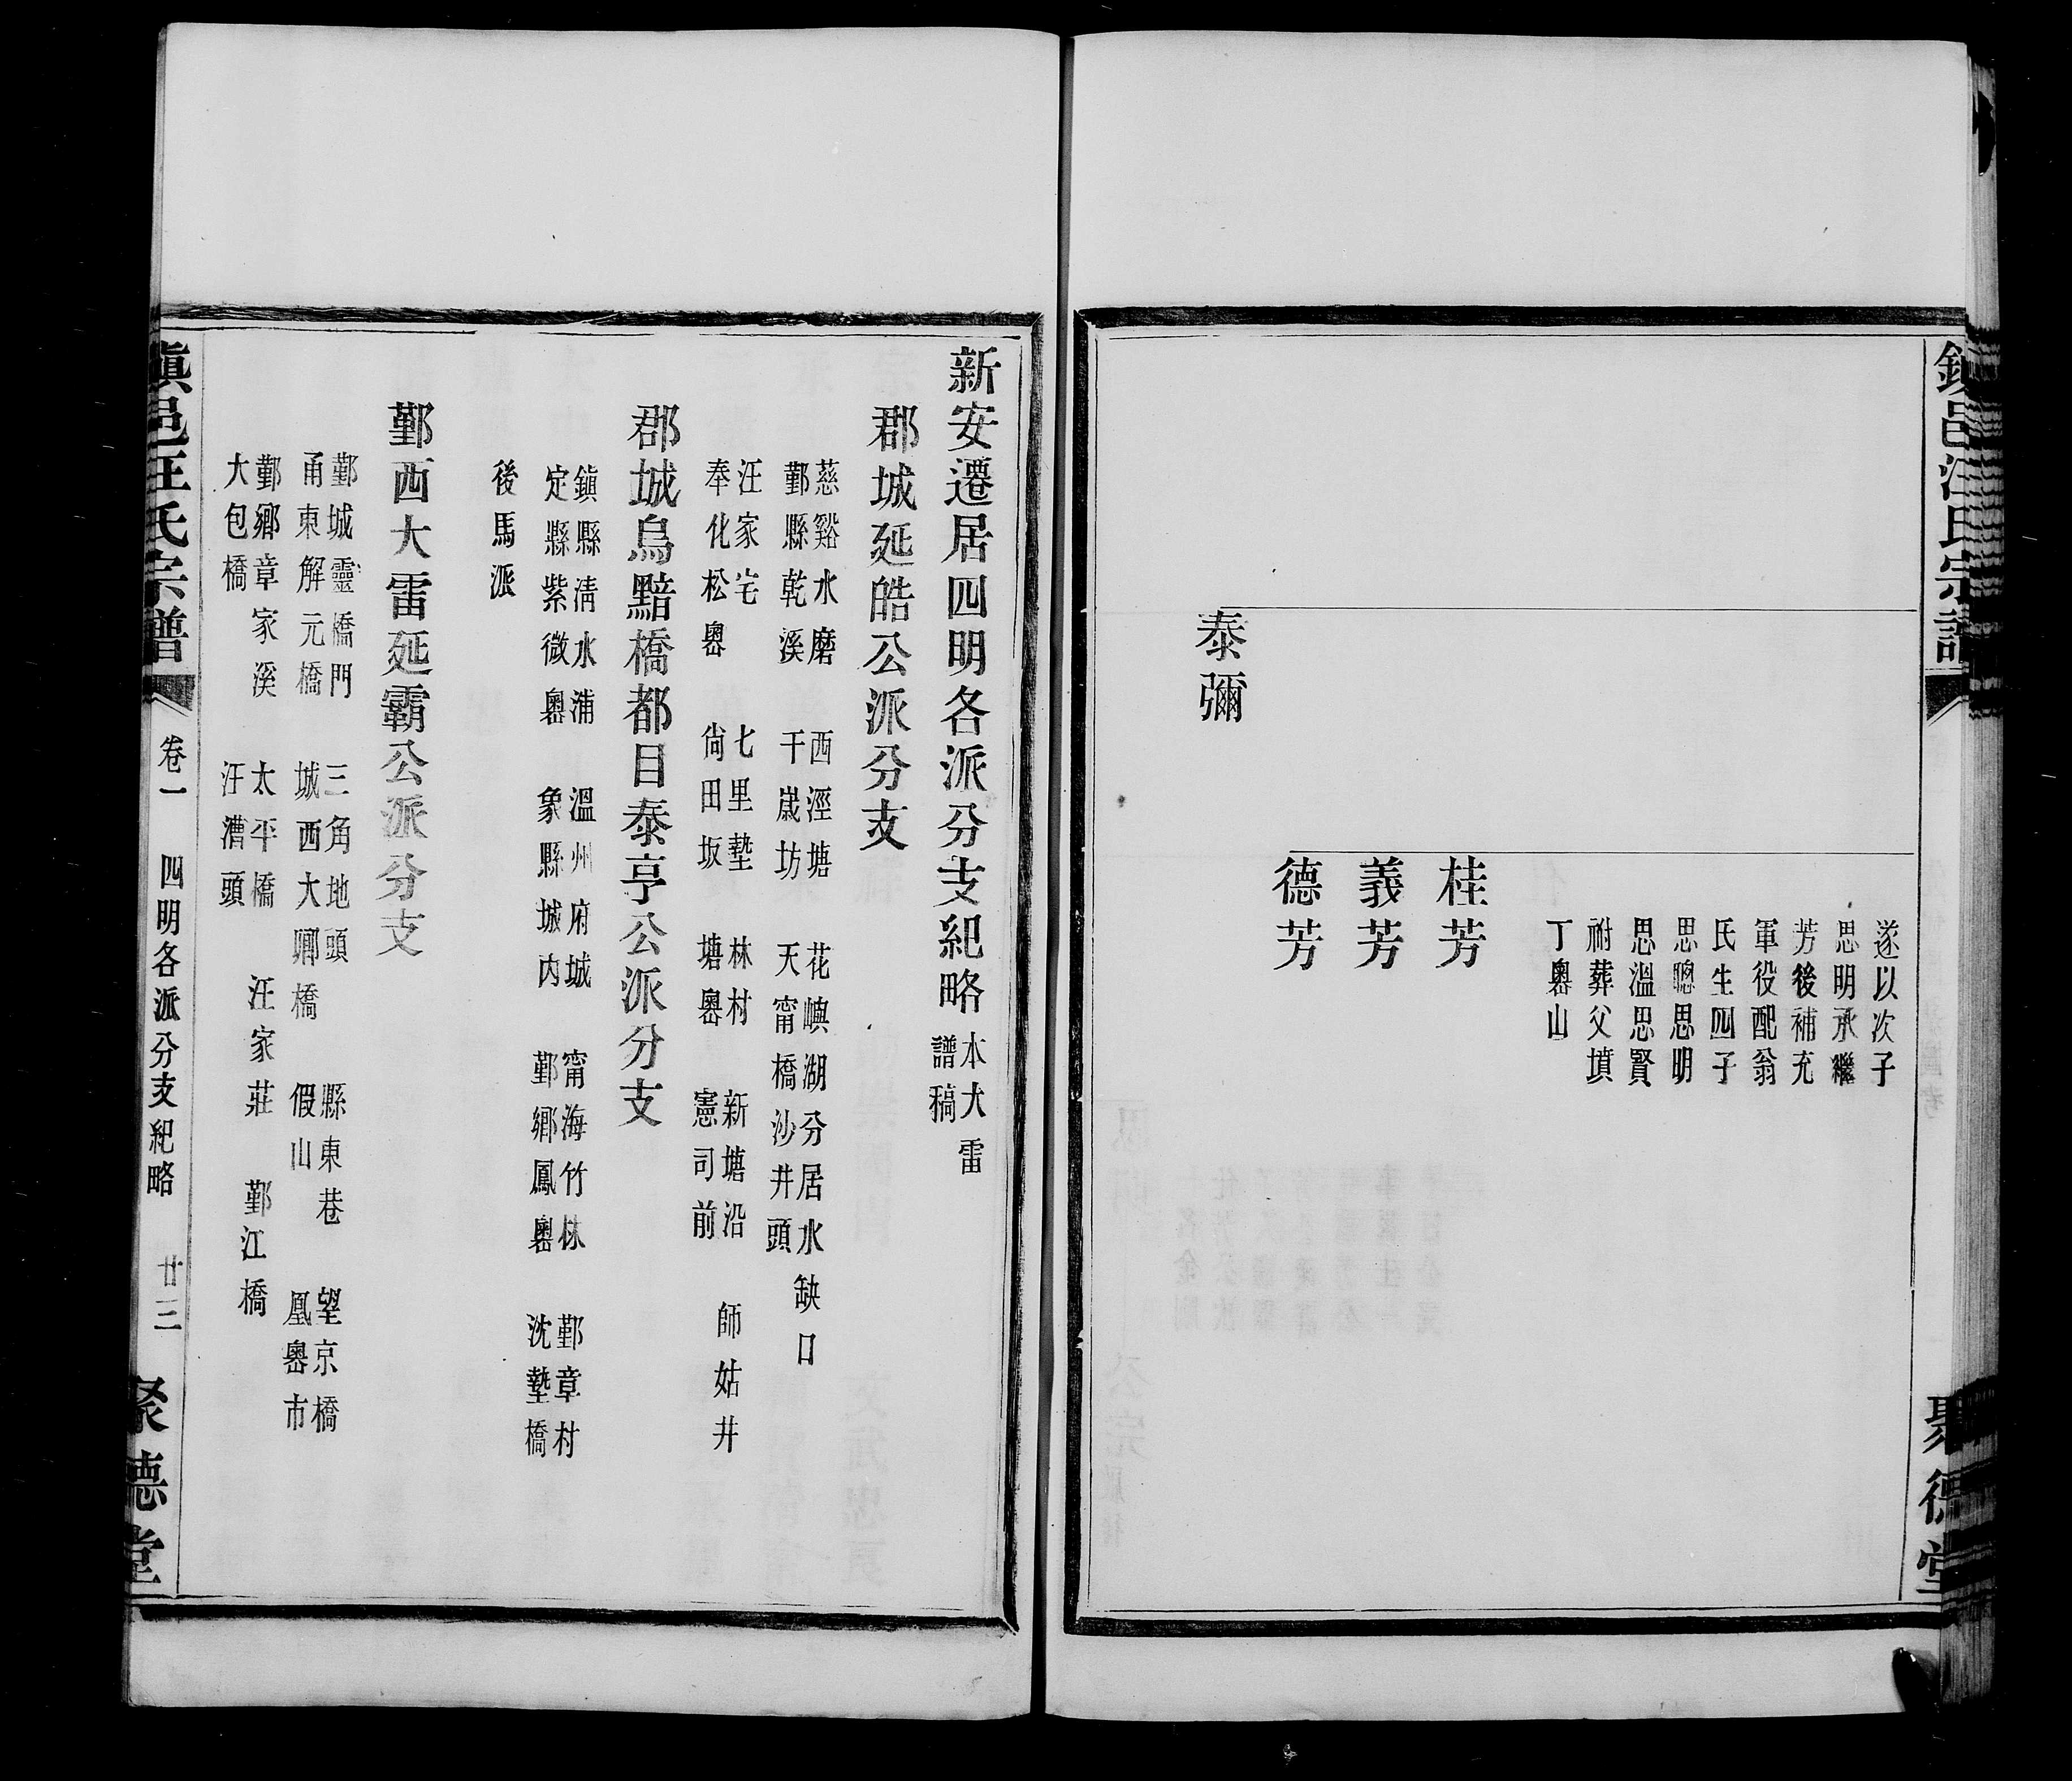 鎮邑汪氏宗譜
聚德堂
遂以次子
思明承繼
芳後補充
軍役配翁
氏生四子
思聰思明
思溫思賢
祔葬父墳
丁嶴山
桂芳
義芳
德芳
泰彌
新安遷居四明各派分支紀略 本大雷
譜稿
郡城延皓公派分支
慈谿水磨 西涇塘 花嶼湖分居水缺口
鄞縣乾溪 千歲坊 天甯橋沙井頭
汪家宅 七里墊 林村 新塘沿 師姑井
奉化松嶴 尙田坂 塘嶴 憲司前
郡城烏黯橋都目泰亨公派分支
鎭縣淸水浦 溫州府城 甯海竹林 鄞章村
定縣紫微嶴 象縣城內 鄞鄉鳳嶴 沈墊橋
後馬派
鄞西大雷延霸公派分支
鄞城靈橋門 三角地頭 縣東巷 望京橋
甬東解元橋 城西大卿橋 假山 凰嶴市
鄞鄉章家溪 太平橋 汪家莊 鄞江橋
大包橋 汪漕頭
鎭邑汪氏宗譜 卷一 四明各派分支紀略 廿三 聚德堂